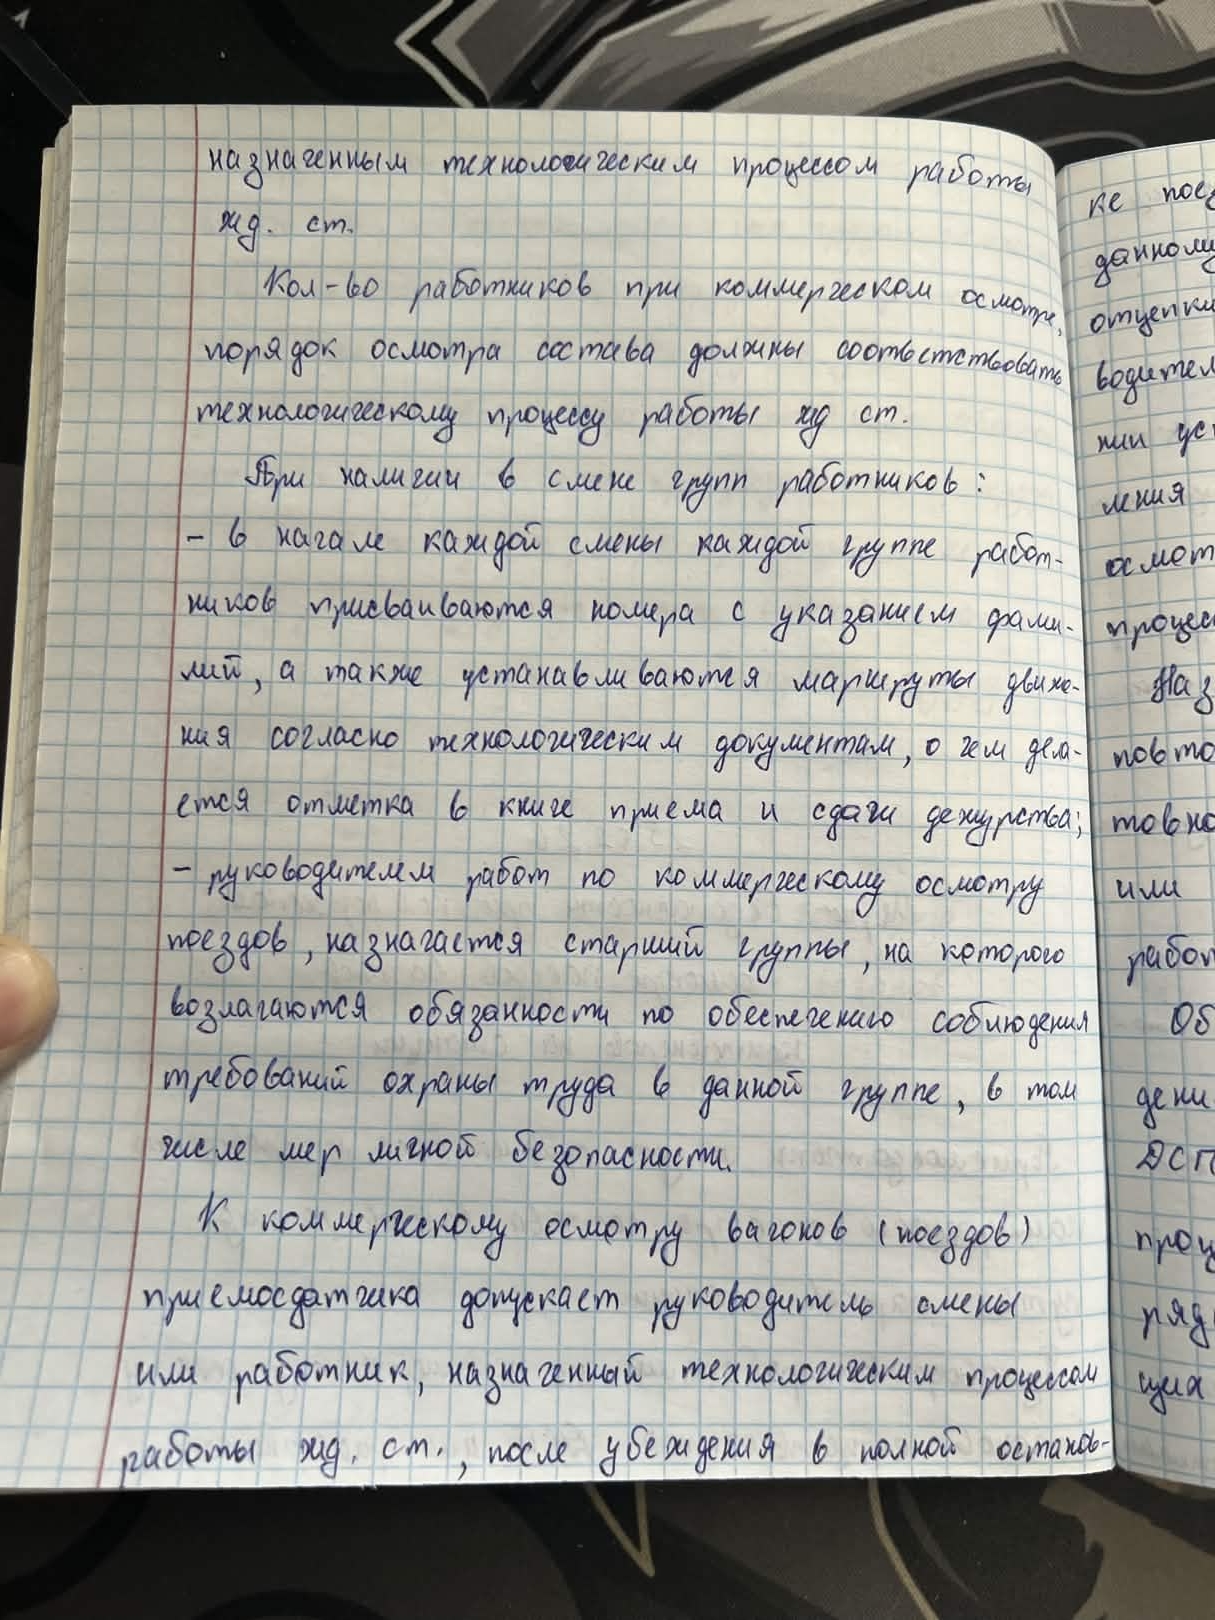 назначенным технологическим процессом работы
жд. ст.
Кол-во работников при коммерческом осмотре,
порядок осмотра состава должны соответствовать
технологическому процессу работы жд ст.
При наличии в смене групп работников:
- в начале каждой смены каждой группе работ-
ников присваиваются номера с указанием фами-
лий, а также устанавливаются маршруты движе-
ния согласно технологическим документам, о чем дела-
ется отметка в книге приема и сдачи дежурства;
- руководителем работ по коммерческому осмотру
поездов, назначается старший группы, на которого
возлагаются обязанности по обеспечению соблюдения
требований охраны труда в данной группе, в том
числе мер личной безопасности.
К коммерческому осмотру вагонов (поездов)
приемосдатчика допускает руководитель смены
или работник, назначенный технологическим процессом
работы жд. ст., после убеждения в полной останов-
ке поез
данному
отцепки
водител
нии уст
ления
осмот
процесс
Наз
повто
товно
или
работ
Об
дени
ДСП
проц
ряд
щих